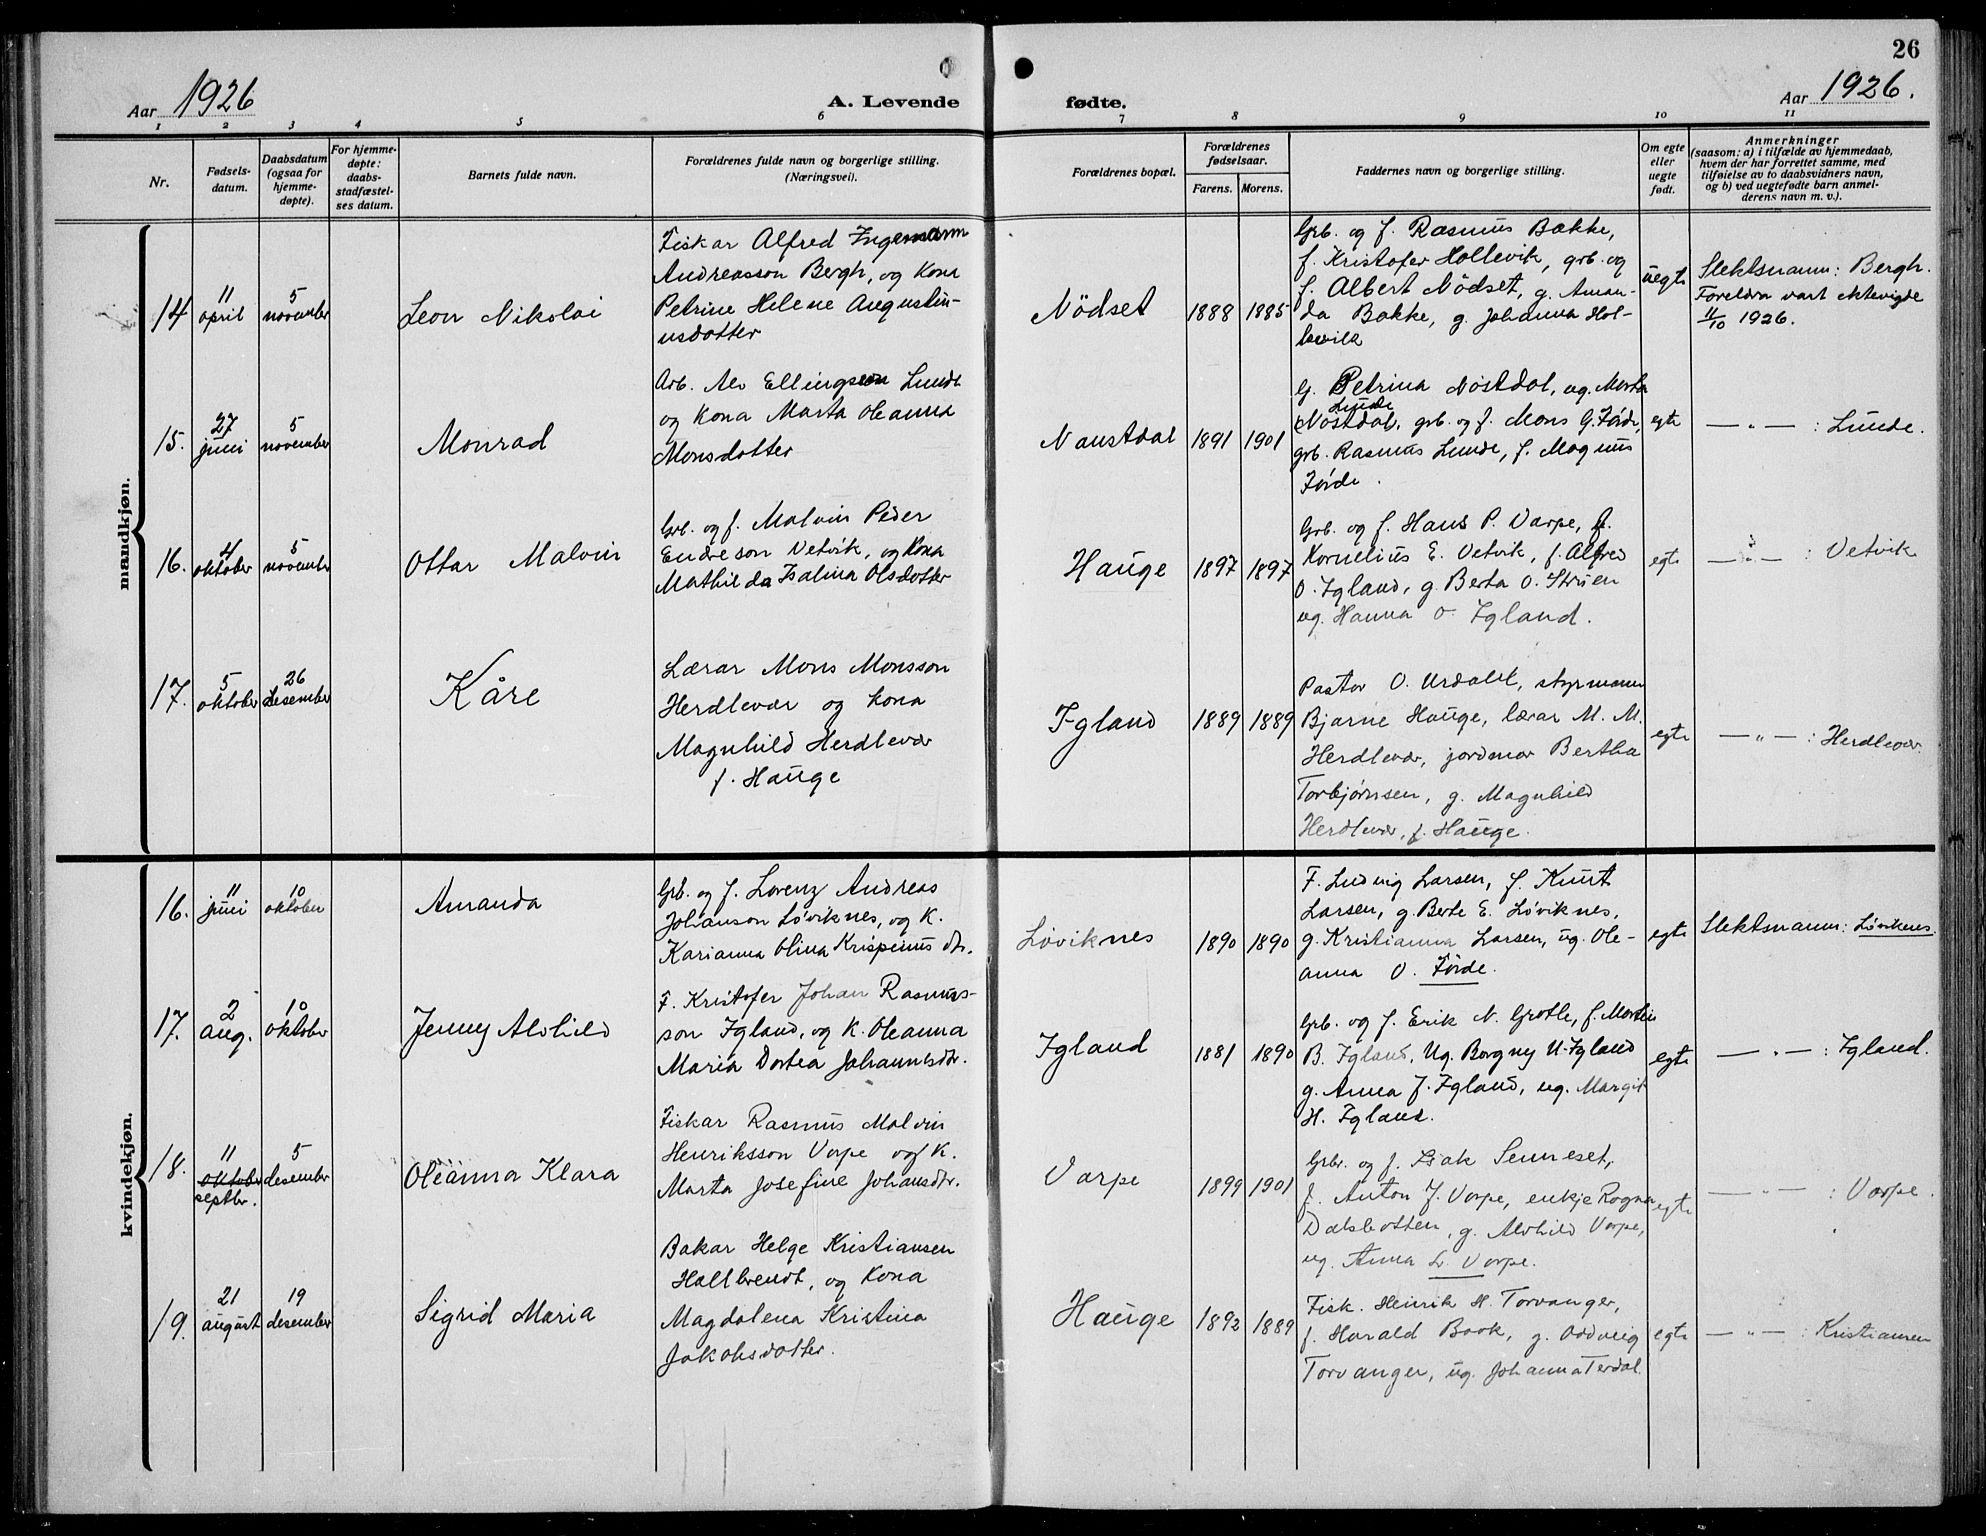 26
Aar 1926
A. Levende
fødte.
Aar 1926.
1 2 3 4 5 6 7 8 9 10 11
Nr.
Fødsels-
datum.
Daabsdatum
(ogsaa for
hjemme-
døpte).
For hjemme-
døpte:
daabs-
stadfæstel-
ses datum.
Barnets fulde navn.
Forældrenes fulde navn og borgerlige stilling.
(Næringsvei).
Forældrenes bopæl.
Forældrenes
fødselsaar.
Farens. Morens.
Faddernes navn og borgerlige stilling.
Om egte
eller
uegte
født.
Anmerkninger
(saasom: a) i tilfælde av hjemmedaab,
hvem der har forrettet samme, med
tilføielse av to daabsvidners navn,
og b) ved uegtefødte barn anmel-
derens navn m. v.).
mandkjøn.
14
11
april
5
november
Leon Nikolai
Fiskar Alfred Ingemann
Andreasson Bergh, og kona
Petrine Helene Augustin-
usdotter
Nödset
1888
1885
Grb. og f. Rasmus Bakke,
f. Kristofer Hollevik, grb. og
f. Albert Nödset, g. Aman-
da Bakke, g. Johanna Hol-
levik
uegte
Slektsnamn: Bergh.
Foreldra vart ektevigde
11/10 1926.
15.
27
juni
5
november
Monrad
Arb. Alv Ellingson Lunde
og kona Marta Oleanna
Monsdotter
Naustdal
1891
1901
G. Petrina Nöstdal, ug. Marta
Lunde
Nöstdal, grb. og f. Mons G. Förde,
grb. Rasmus Lunde, f. Magnus
Förde.
egte
— " — : Lunde.
16.
4
oktober
5
november
Ottar Malvin
Grb. og f. Malvin Peder
Endreson Vetvik, og kona
Mathilda Isalina Olsdotter
Hauge
1897
1897
Grb. og f. Hans P. Varpe, f.
Kornelius E. Vetvik, f. Alfred
O. Igland, g. Berta O. Struen
ug. Hanna O. Igland.
egte
— " — : Vetvik
17.
5
oktober
26
desember
Kåre
Lærar Mons Monsson
Herdlevær og kona
Magnhild Herdlevær
f. Hauge
Igland
1889
1889
Pastor O. Urdalet, styrmann
Bjarne Hauge, lærar M. M.
Herdlevær, jordmor Bertha
Torbjørnsen, g. Magnhild
Herdlevær, f. Hauge.
egte
— " — : Herdlevær.
kvindekjøn.
16.
11
juni
10
oktober
Amanda
Grb. og f. Lorenz Andreas
Johanson Løviknes, og k.
Karianna Olina Krispinusdtr.
Løviknes
1890
1890
F. Ludvig Larsen, f. Kurt
Larsen, g. Berte E. Løviknes,
g. Kristianna Larsen, ug. Ole-
anna O. Förde.
egte
Slektsnamn: Løviknes
17.
2
aug.
10
oktober
Jenny Alvhild
F. Kristofer Johan Rasmus-
son Igland, og k. Oleanna
Maria Dortea Johannesdtr.
Igland
1881
1890
Grb. og f. Erik N. Grotle, f. Martin
B. Igland, Ug. Borgny U. Igland
g. Anna J. Igland, ug. Margit
H. Igland.
egte
— " — : Igland.
18.
11
oktober
septbr.
5
desember
Oleanna Klara
Fiskar Rasmus Malvin
Henriksson Varpe og k.
Marta Josefine Johansdtr.
Varpe
1899
1901
Grbr. og f. Isak Senneset,
f. Anton J. Varpe, enkje Ragna
Dalsbotten, g. Alvhild Varpe,
ug. Anna L. Varpe.
egte
— " — : Varpe.
19.
21
august
19
desember
Sigrid Maria
Bakar Helge Kristiansen
Hallbrendt, og kona
Magdalena Kristina
Jakobsdotter.
Hauge
1892
1889
Fisk. Henrik H. Torvanger,
f. Harald Book, g. Oddveig
Torvanger, ug. Johanna Terdal.
egte
— " — : Kristiansen